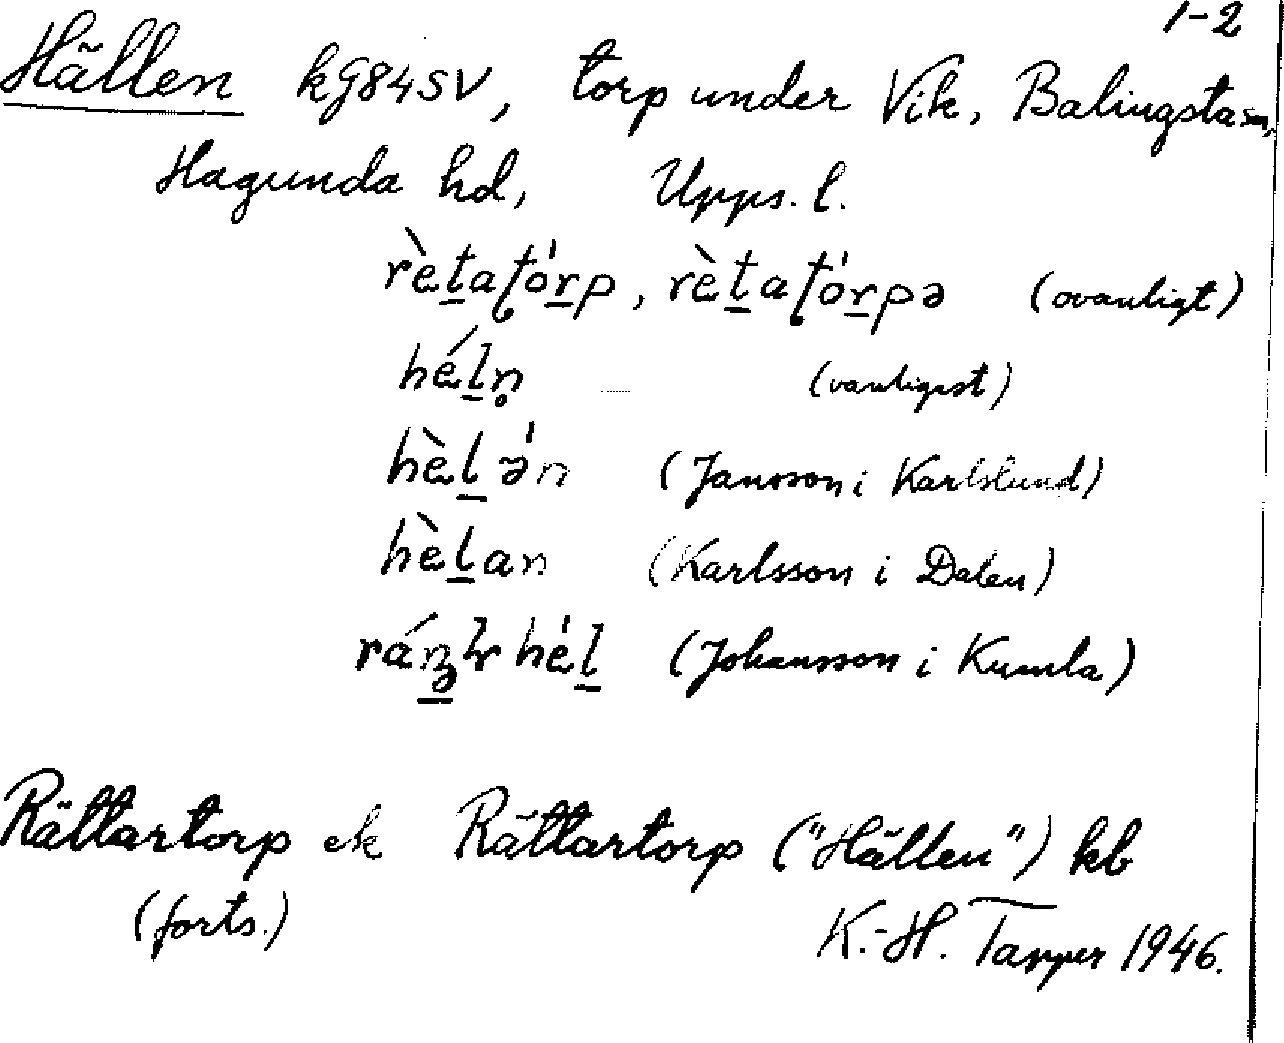 1-2
Hällen kG84SV, torp under Vik, Balingsta sn,
Hagunda hd, Upps. l.
rèt̠aƭór̠p, rèt̠aƭór̠pə (ovanligt)
hél̠n̥ (vanligast)
hèl̠ə́n (Jansson i Karlslund)
hèl̠an (Karlsson i Dalen)
hél̠ (Johansson i Kumla)
Rättartorp ek Rättartorp ("Hällen") kb
(forts.) K.-H. Tapper 1946.